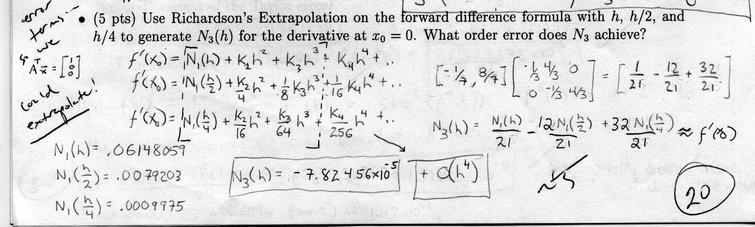 • (5 pts) Use Richardson's Extrapolation on the forward difference formula with h, h/2, and
h/4 to generate N₃(h) for the derivative at x₀ = 0. What order error does N₃ achieve?
error
terms...
so we
A^T x = [1 0]
could
extrapolate!
f'(x₀) = N₁(h) + K₂h² + K₃h³ + K₄h⁴ + ..
f'(x₀) = N₁(h/2) + K₂/4 h² + 1/8 K₃h³ + 1/16 K₄h⁴ + ..
f'(x₀) = N₁(h/4) + K₂/16 h² + K₃/64 h³ + K₄/256 h⁴ + ..
[-1/7, 8/7] [-1/3 4/3 0
0 -1/3 4/3] = [1/21 - 12/21 + 32/21]
N₃(h) = N₁(h)/21 - 12N₁(h/2)/21 + 32N₁(h/4)/21 ≈ f'(x₀)
N₁(h) = .06148059
N₁(h/2) = .0079203
N₁(h/4) = .0009975
N₃(h) = -7.82456x10⁻⁵ + O(h⁴)
20